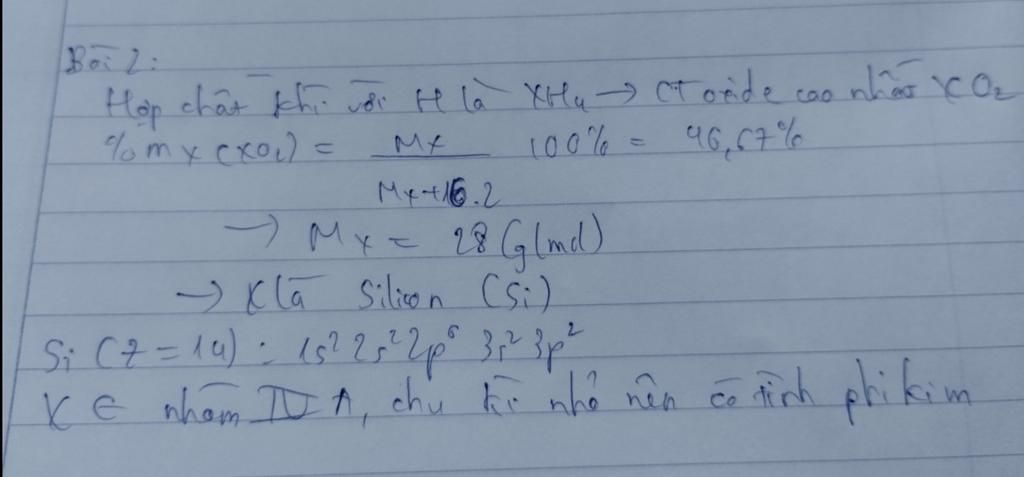 Bài 2:
Hợp chất khí với H là XH₄ → CT oxide cao nhất XO₂
% m X (XO₂) = Mx / Mx+16.2 100% = 46,67%
→ Mx = 28 (g/mol)
→ X là Silicon (Si)
Si (Z = 14) : 1s² 2s² 2p⁶ 3s² 3p²
X ∈ nhóm IV A, chu kì nhỏ nên có tính phi kim